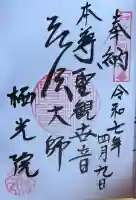 奉納
令和七年四月九日
本尊聖観世音
弘法大師
光院